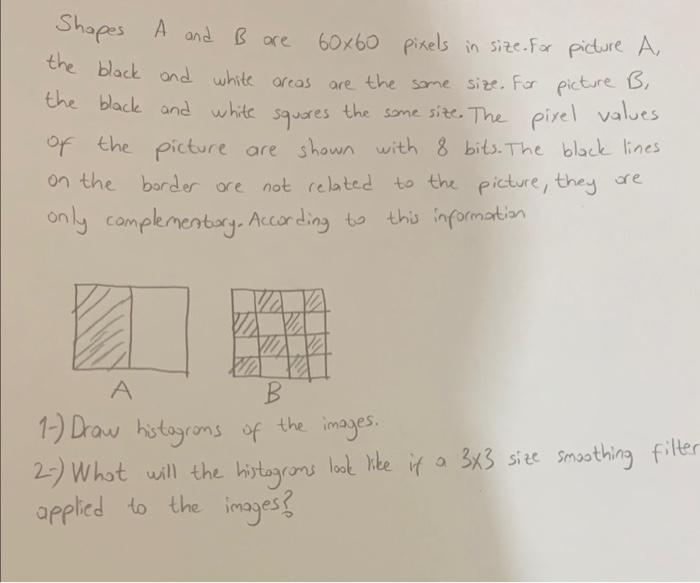 Shapes A and B are 60x60 pixels in size. For picture A,
the black and white areas are the same size. For picture B,
the black and white squares the same size. The pixel values
of the picture are shown with 8 bits. The black lines
on the border are not related to the picture, they are
only complementory. According to this information
A B
1-) Draw histograms of the images.
2-) What will the histograms look like if a 3x3 size smoothing filter
applied to the images?